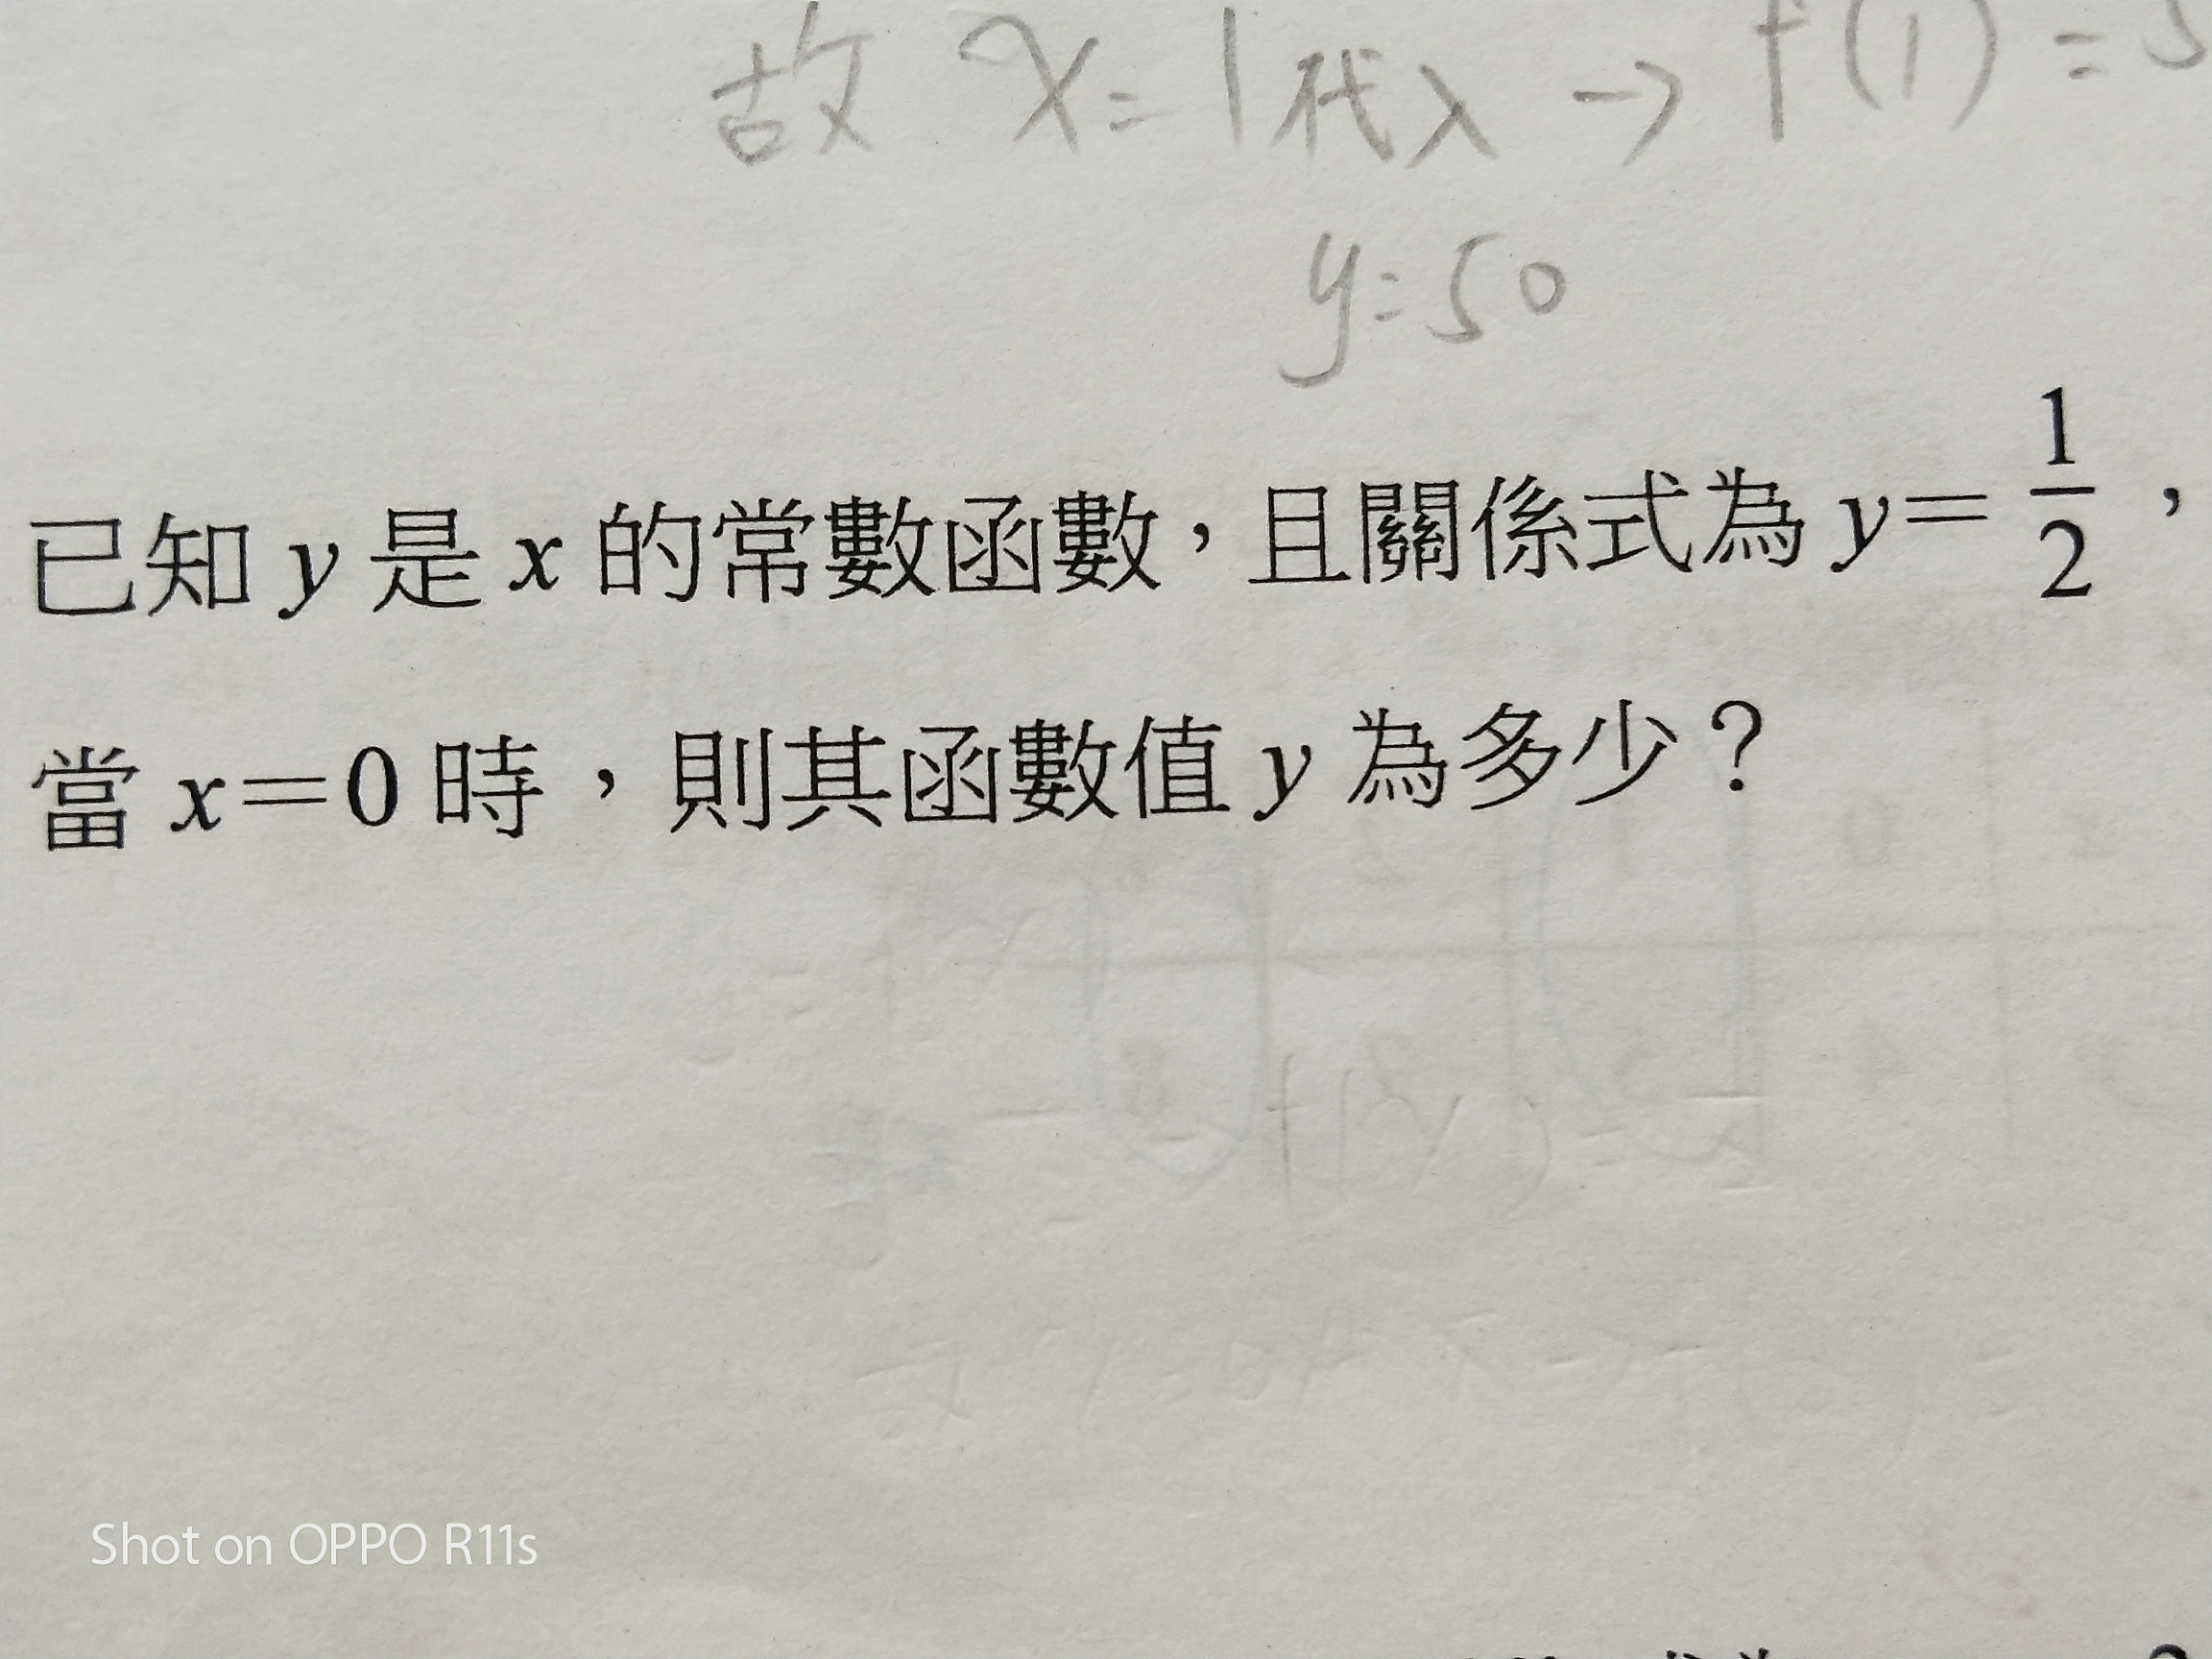 故 x=1代入 → f(1)=5
y=50
已知 y 是 x 的常數函數，且關係式為 y=1/2，
當 x=0 時，則其函數值 y 為多少？
Shot on OPPO R11s